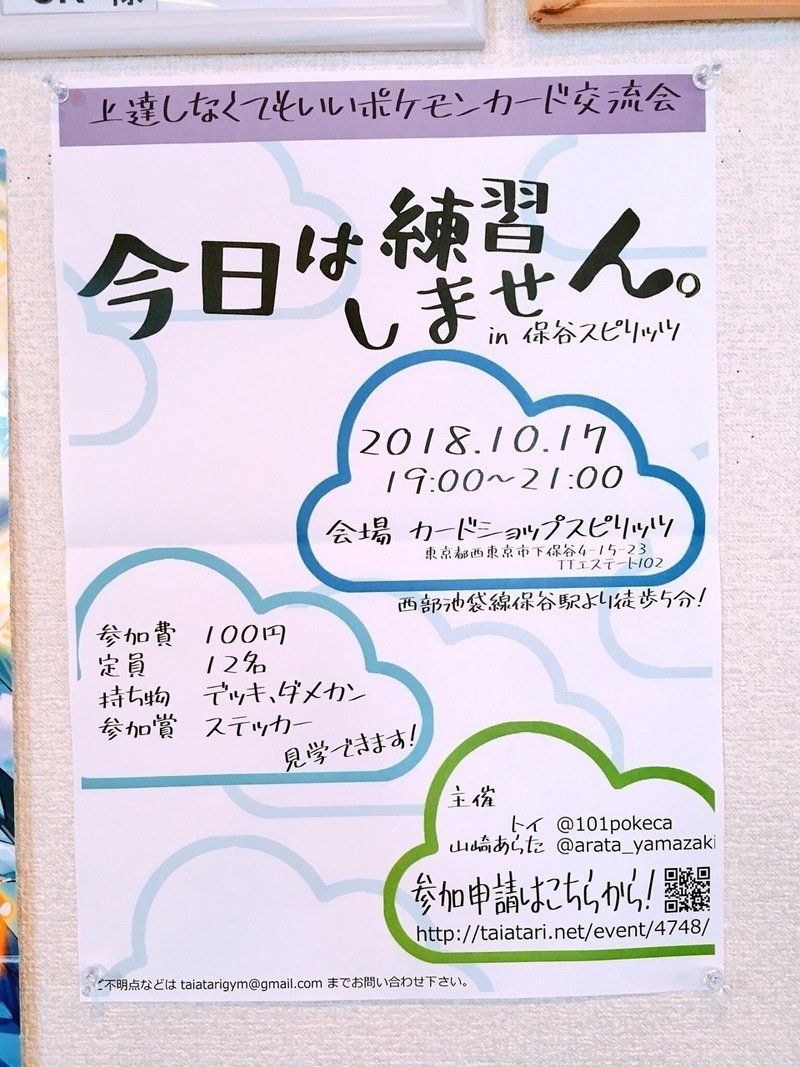 様
上達しなくてもいいポケモンカード交流会
今日は練習しません。
in 保谷スピリッツ
2018.10.17
19:00～21:00
会場 カードショップスピリッツ
東京都西東京市下保谷4-15-23
TTエステート102
西部池袋線保谷駅より徒歩5分!
参加費 100円
定員 12名
持ち物 デッキ、ダメカン
参加賞 ステッカー
見学できます!
主催
トイ @101pokeca
山崎あらた @arata_yamazaki
参加申請はこちらから!
http://taiatari.net/event/4748/
ご不明点などは taiatarigym@gmail.com までお問い合わせ下さい。